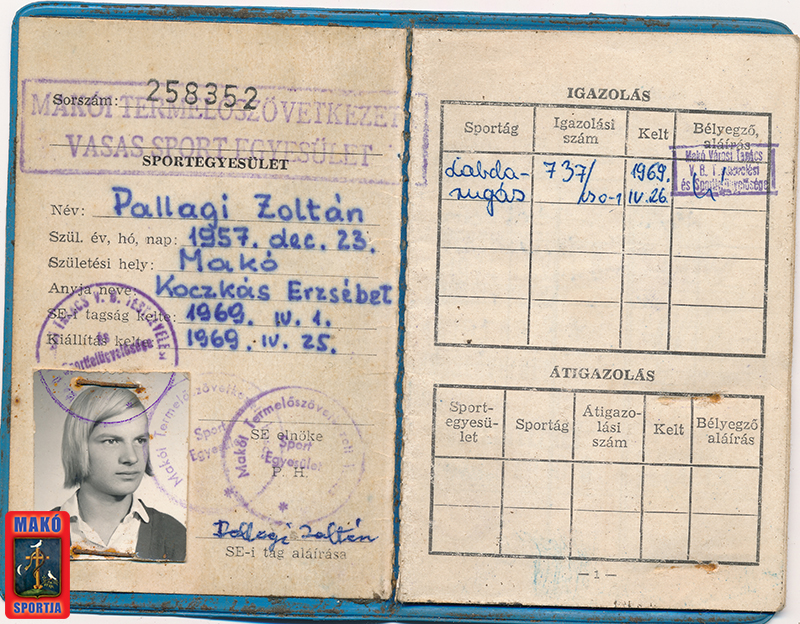 Sorszám: 258352
MAKÓI TERMELŐSZÖVETKEZETI
VASAS SPORT EGYESÜLET
SPORTEGYESÜLET
Név: Pallagi Zoltán
Szül. év, hó, nap: 1957. dec. 23.
Születési hely: Makó
Anyja neve: Koczkás Erzsébet
SE-i tagság kelte: 1969. IV. 1.
Kiállítás kelte: 1969. IV. 25.
és
Sportfelügyelősége
Makói Termelőszövetkezeti
Sport
SE elnöke
Makói Termelőszövetkezeti
Sport
Egyesület
P. H.
Pallagi Zoltán
SE-i tag aláírása
MAKÓ
SPORTJA
IGAZOLÁS
Sportág Igazolási szám Kelt Bélyegző, aláírás
Labda- 737/ 1969.
rugás iso-1 IV. 26.
Makó Városi Tanács
és Sportfelügyelősége
ÁTIGAZOLÁS
Sport-egyesü-let Sportág Átigazo-lási szám Kelt Bélyegző aláírás
— 1 —